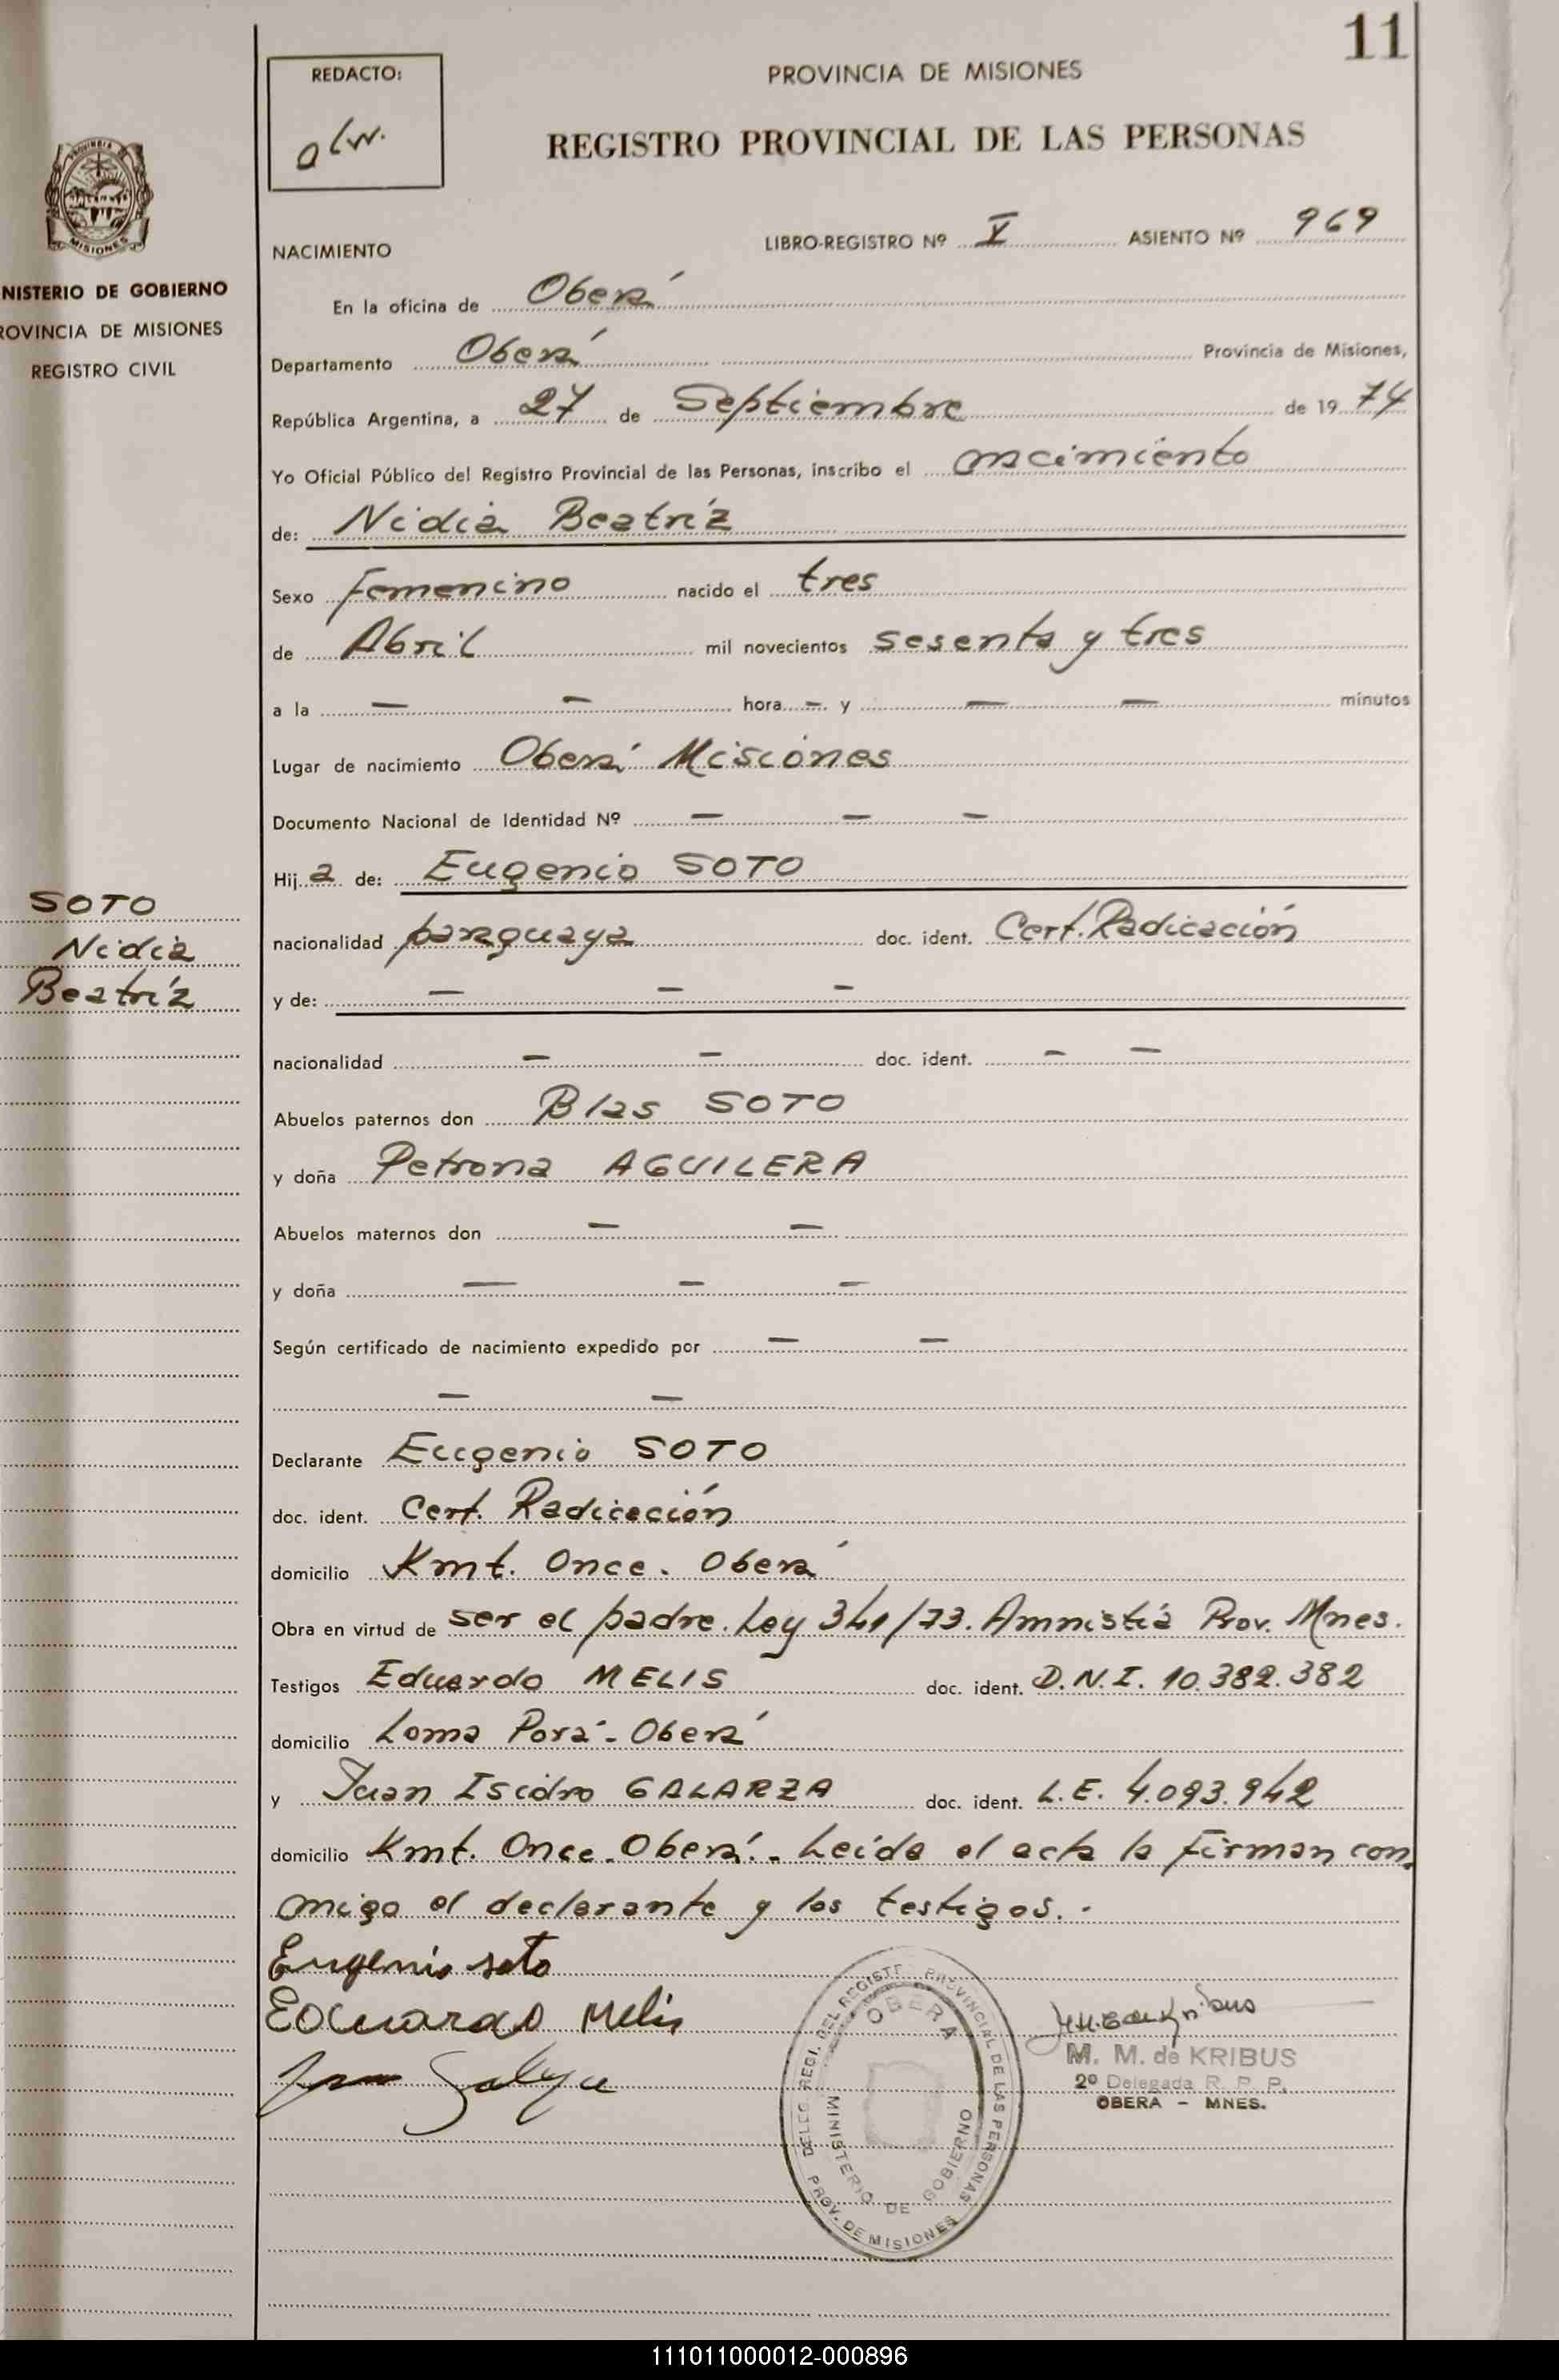 11
REDACTO:
PROVINCIA DE MISIONES
REGISTRO PROVINCIAL DE LAS PERSONAS
PROVINCIA DE
MISIONES
NISTERIO DE GOBIERNO
ROVINCIA DE MISIONES
REGISTRO CIVIL
NACIMIENTO
LIBRO-REGISTRO Nº V ASIENTO Nº 969
En la oficina de Oberá
Departamento Oberá Provincia de Misiones,
República Argentina, a 27 de Septiembre de 19 74
Yo Oficial Público del Registro Provincial de las Personas, inscribo el nacimiento
de: Nidia Beatríz
Sexo Femenino nacido el tres
de Abril mil novecientos sesenta y tres
a la — — hora - y — — minutos
Lugar de nacimiento Oberá Misiones
Documento Nacional de Identidad Nº — — —
Hij a de: Eugenio SOTO
SOTO
Nidia
Beatríz
nacionalidad paraguaya doc. ident. Cert. Radicación
y de: — — —
nacionalidad — — doc. ident. — —
Abuelos paternos don Blas SOTO
y doña Petrona AGUILERA
Abuelos maternos don — —
y doña — — —
Según certificado de nacimiento expedido por — —
— —
Declarante Eugenio SOTO
doc. ident. Cert. Radicación
domicilio Kmt. Once. Oberá
Obra en virtud de ser el padre. Ley 341/73. Amnistía Prov. Mnes.
Testigos Eduardo MELIS doc. ident. D.N.I. 10.382.382
domicilio Loma Porá - Oberá
y Juan Isidro GALARZA doc. ident. L.E. 4.093.942
domicilio Kmt. Once. Oberá. - Leída el acta la firman con
migo el declarante y los testigos. -
Eugenio soto
Eduardo Melis
DELEG. REGI. DEL REGISTRO PROVINCIAL DE LAS PERSONAS
OBERA
MINISTERIO DE GOBIERNO
PROV. DE MISIONES
M. M. de KRIBUS
2º Delegada R. P. P.
OBERA - MNES.
111011000012-000896